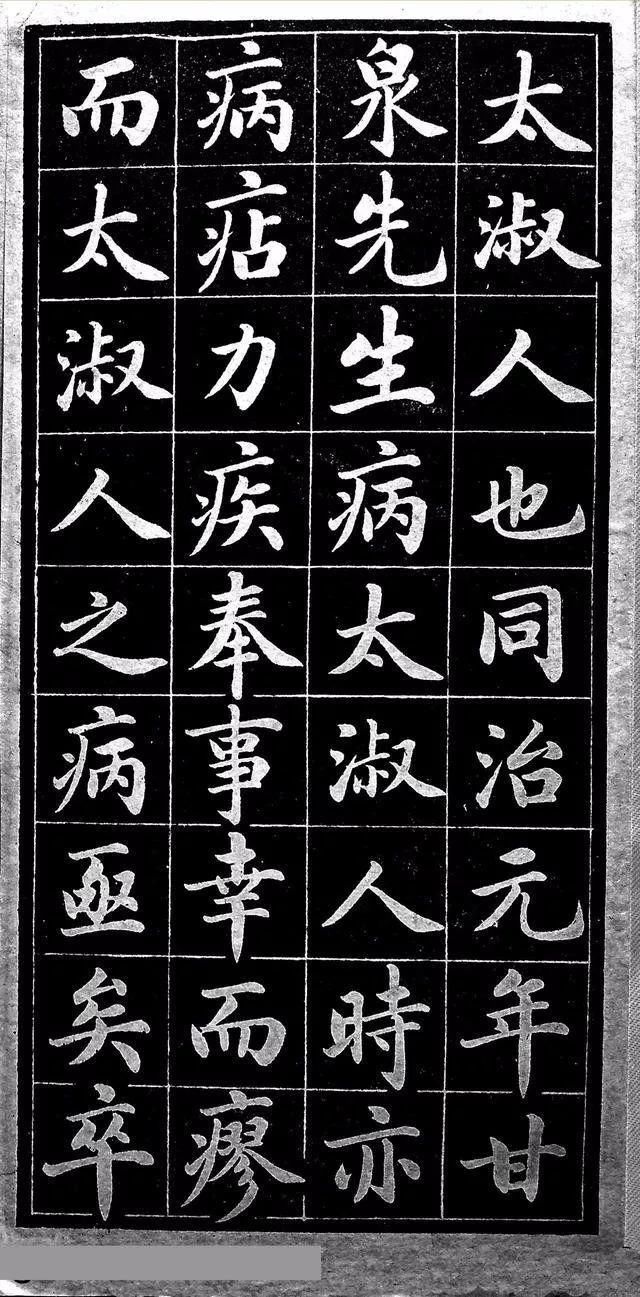 太淑人也同治元年甘
泉先生病太淑人時亦
病痁力疾奉事幸而瘳
而太淑人之病亟矣卒